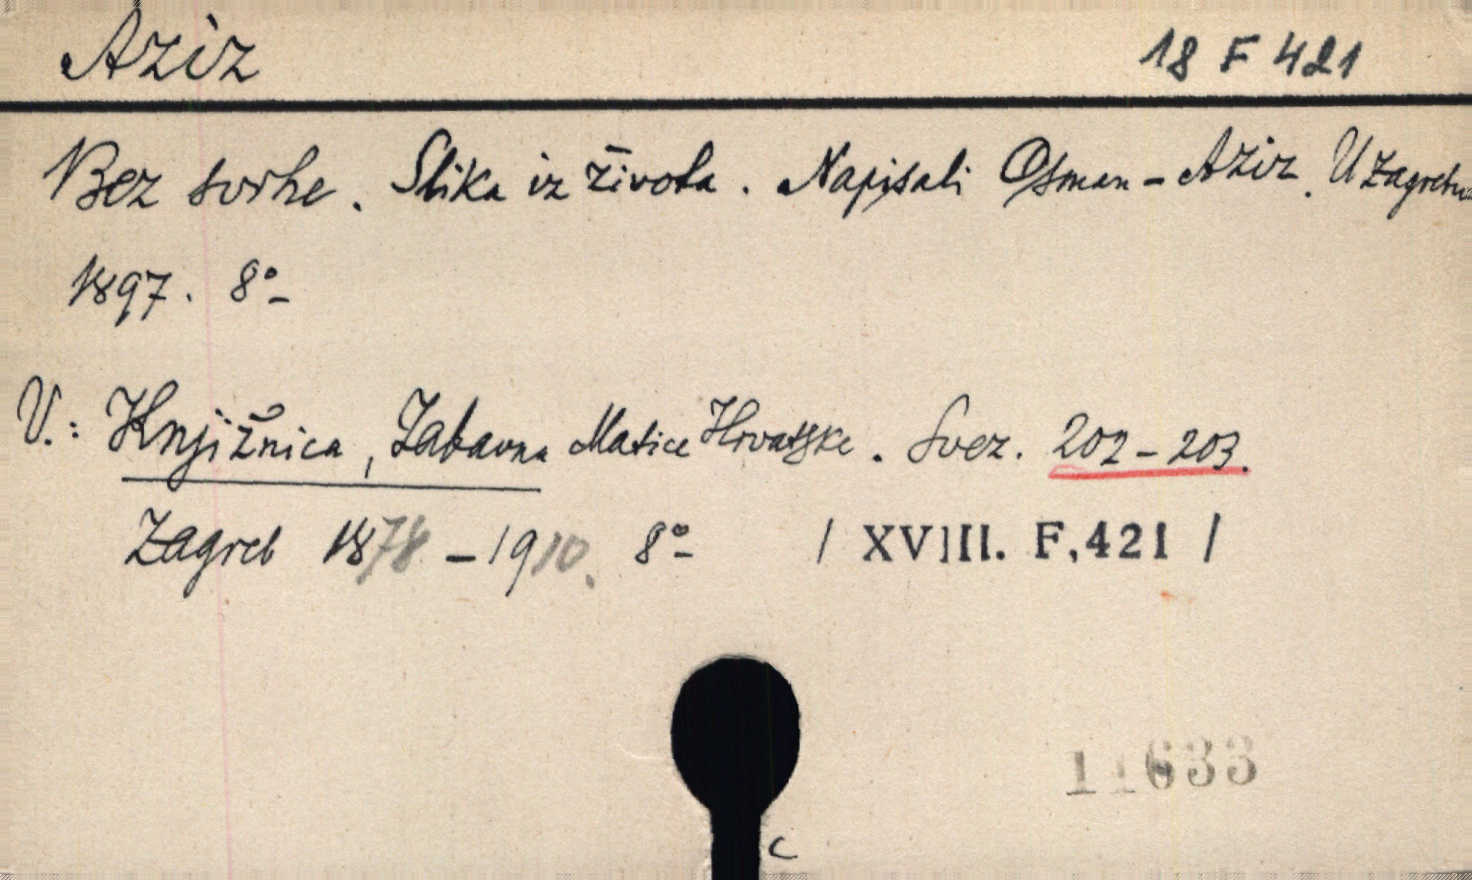 Aziz 18 F 421
Bez svrhe. Slika iz života. Napisali Osman-Aziz. U Zagrebu
1897. 8°
V.: Knjižnica, Zabavna Matice Hrvatske. Svez. 202-203.
Zagreb 1878-1910. 8° / XVIII. F,421 /
11633
c